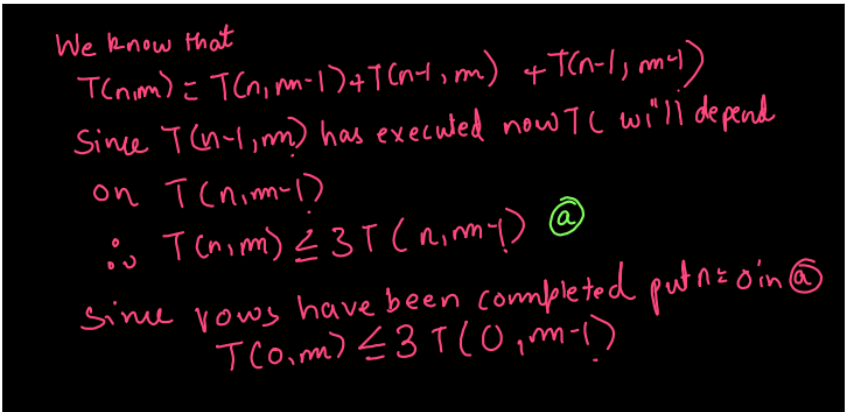 We know that
T(n,m) = T(n,m-1)+T(n-1,m) +T(n-1,m-1)
Since T(n-1,m) has executed now TC will depend
on T(n,m-1)
∴ T(n,m) ≤ 3T(n,m-1) ⓐ
Since rows have been completed put n=0 in ⓐ
T(0,m) ≤ 3T(0,m-1)